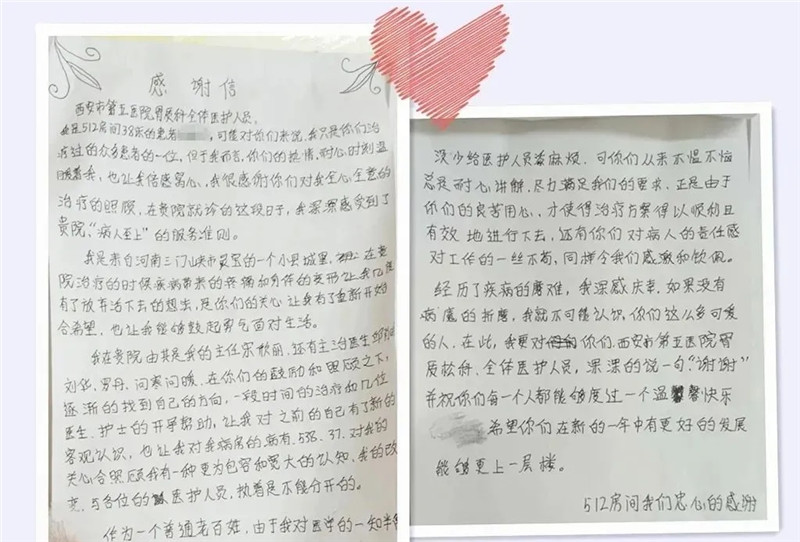 感谢信
西安市第五医院骨质科全体医护人员,
我是512房间38床的患者 ，可能对你们来说，我只是你们治
疗过的众多患者的一位，但于我而言，你们的热情、耐心时刻温
暖着我，也让我倍感窝心，我很感谢你们对我全心全意的
治疗的照顾，在贵院就诊的这段日子，我深深感受到了
贵院，"病人至上"的服务准则。
我是来自河南三门峡市灵宝的一个小县城里，在贵
院治疗的时候疾病带来的疼痛和身体的变形让我几度
有了放弃活下去的想法，是你们的关心让我有了重新开始的
希望，也让我能够鼓起勇气面对生活。
我在贵院由其是我的主任宋欣丽，还有主治医生
刘华，罗丹，问寒问暖，在你们的鼓励和照顾之下，
逐渐的找到自己的方向，一段时间的治疗和几位
医生、护士的开导帮助，让我对之前的自己有了新的
客观认识，也让我对我病房的病友，538、37、对我的
关心合照顾我有一种更为包容和宽大的认知、我的改
变，与各位的医护人员，执着是不能分开的。
作为一个普通老百姓，由于我对医学的一知半解
没少给医护人员添麻烦，可你们从来不愠不恼
总是耐心讲解，尽力满足我们的要求，正是由于
你们的良苦用心，才使得治疗方案得以顺利且
有效地进行下去，还有你们对病人的责任感
对工作的一丝不苟，同样令我们感激和钦佩。
经历了疾病的磨难，我深感庆幸，如果没有
病魔的折磨，我就不可能认识，你们这么多可爱
的人，在此，我要对你们，西安市第五医院骨
质松舟，全体医护人员，深深的说一句："谢谢"
并祝你们每一个人都能够度过一个温馨快乐
希望你们在新的一年中有更好的发展
能够更上一层楼。
512房间我们忠心的感谢